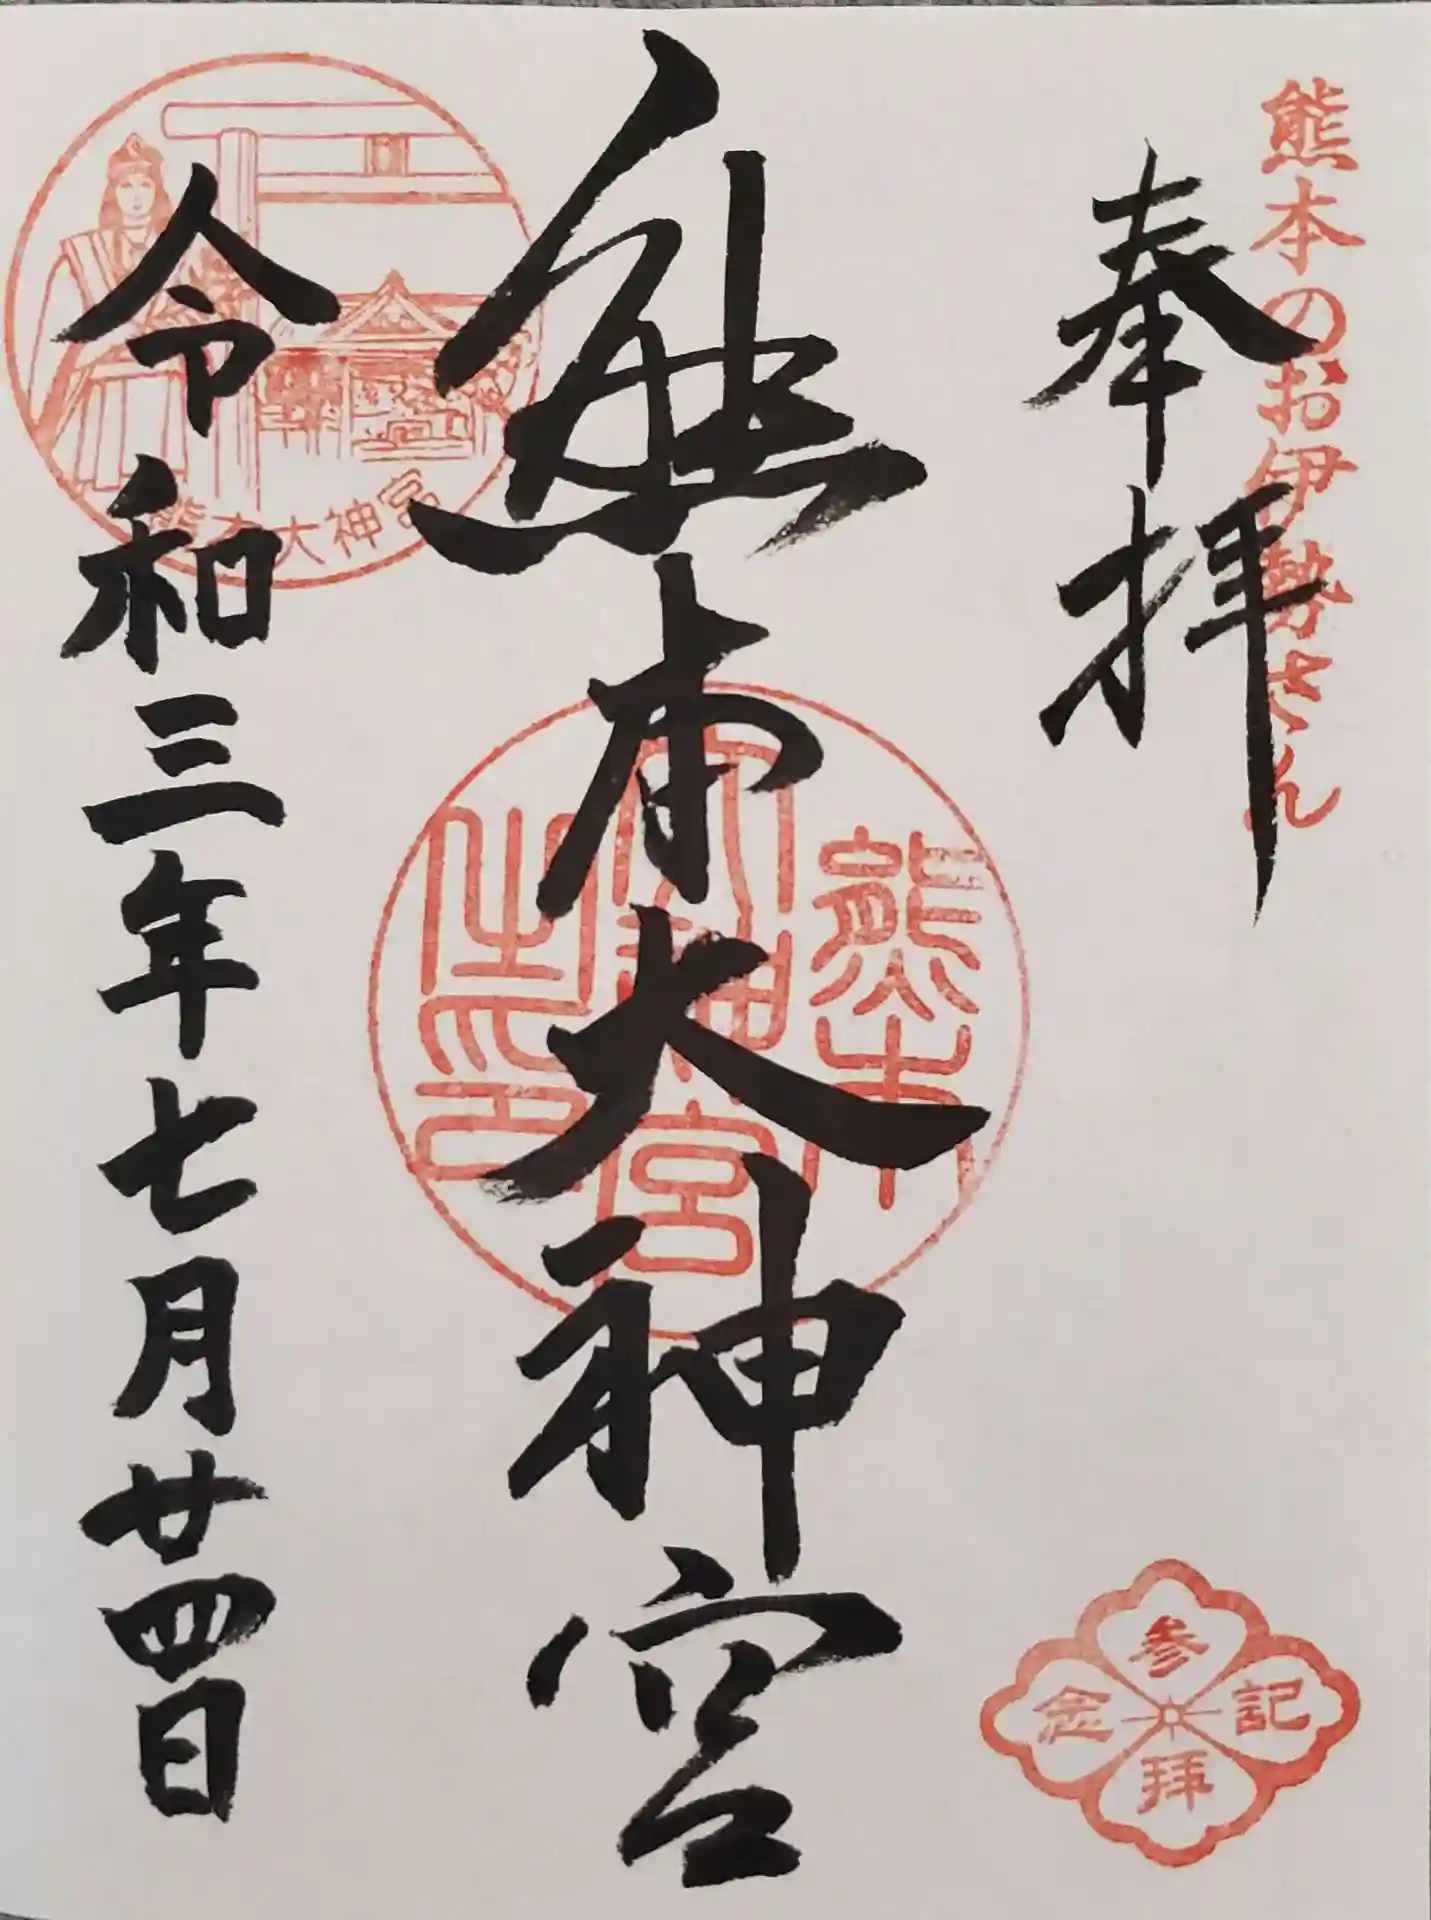 熊本のお伊勢さん
奉拝
熊本大神宮
熊本
大神宮
之印
令和三年七月廿四日
熊本大神宮
参拝
記念